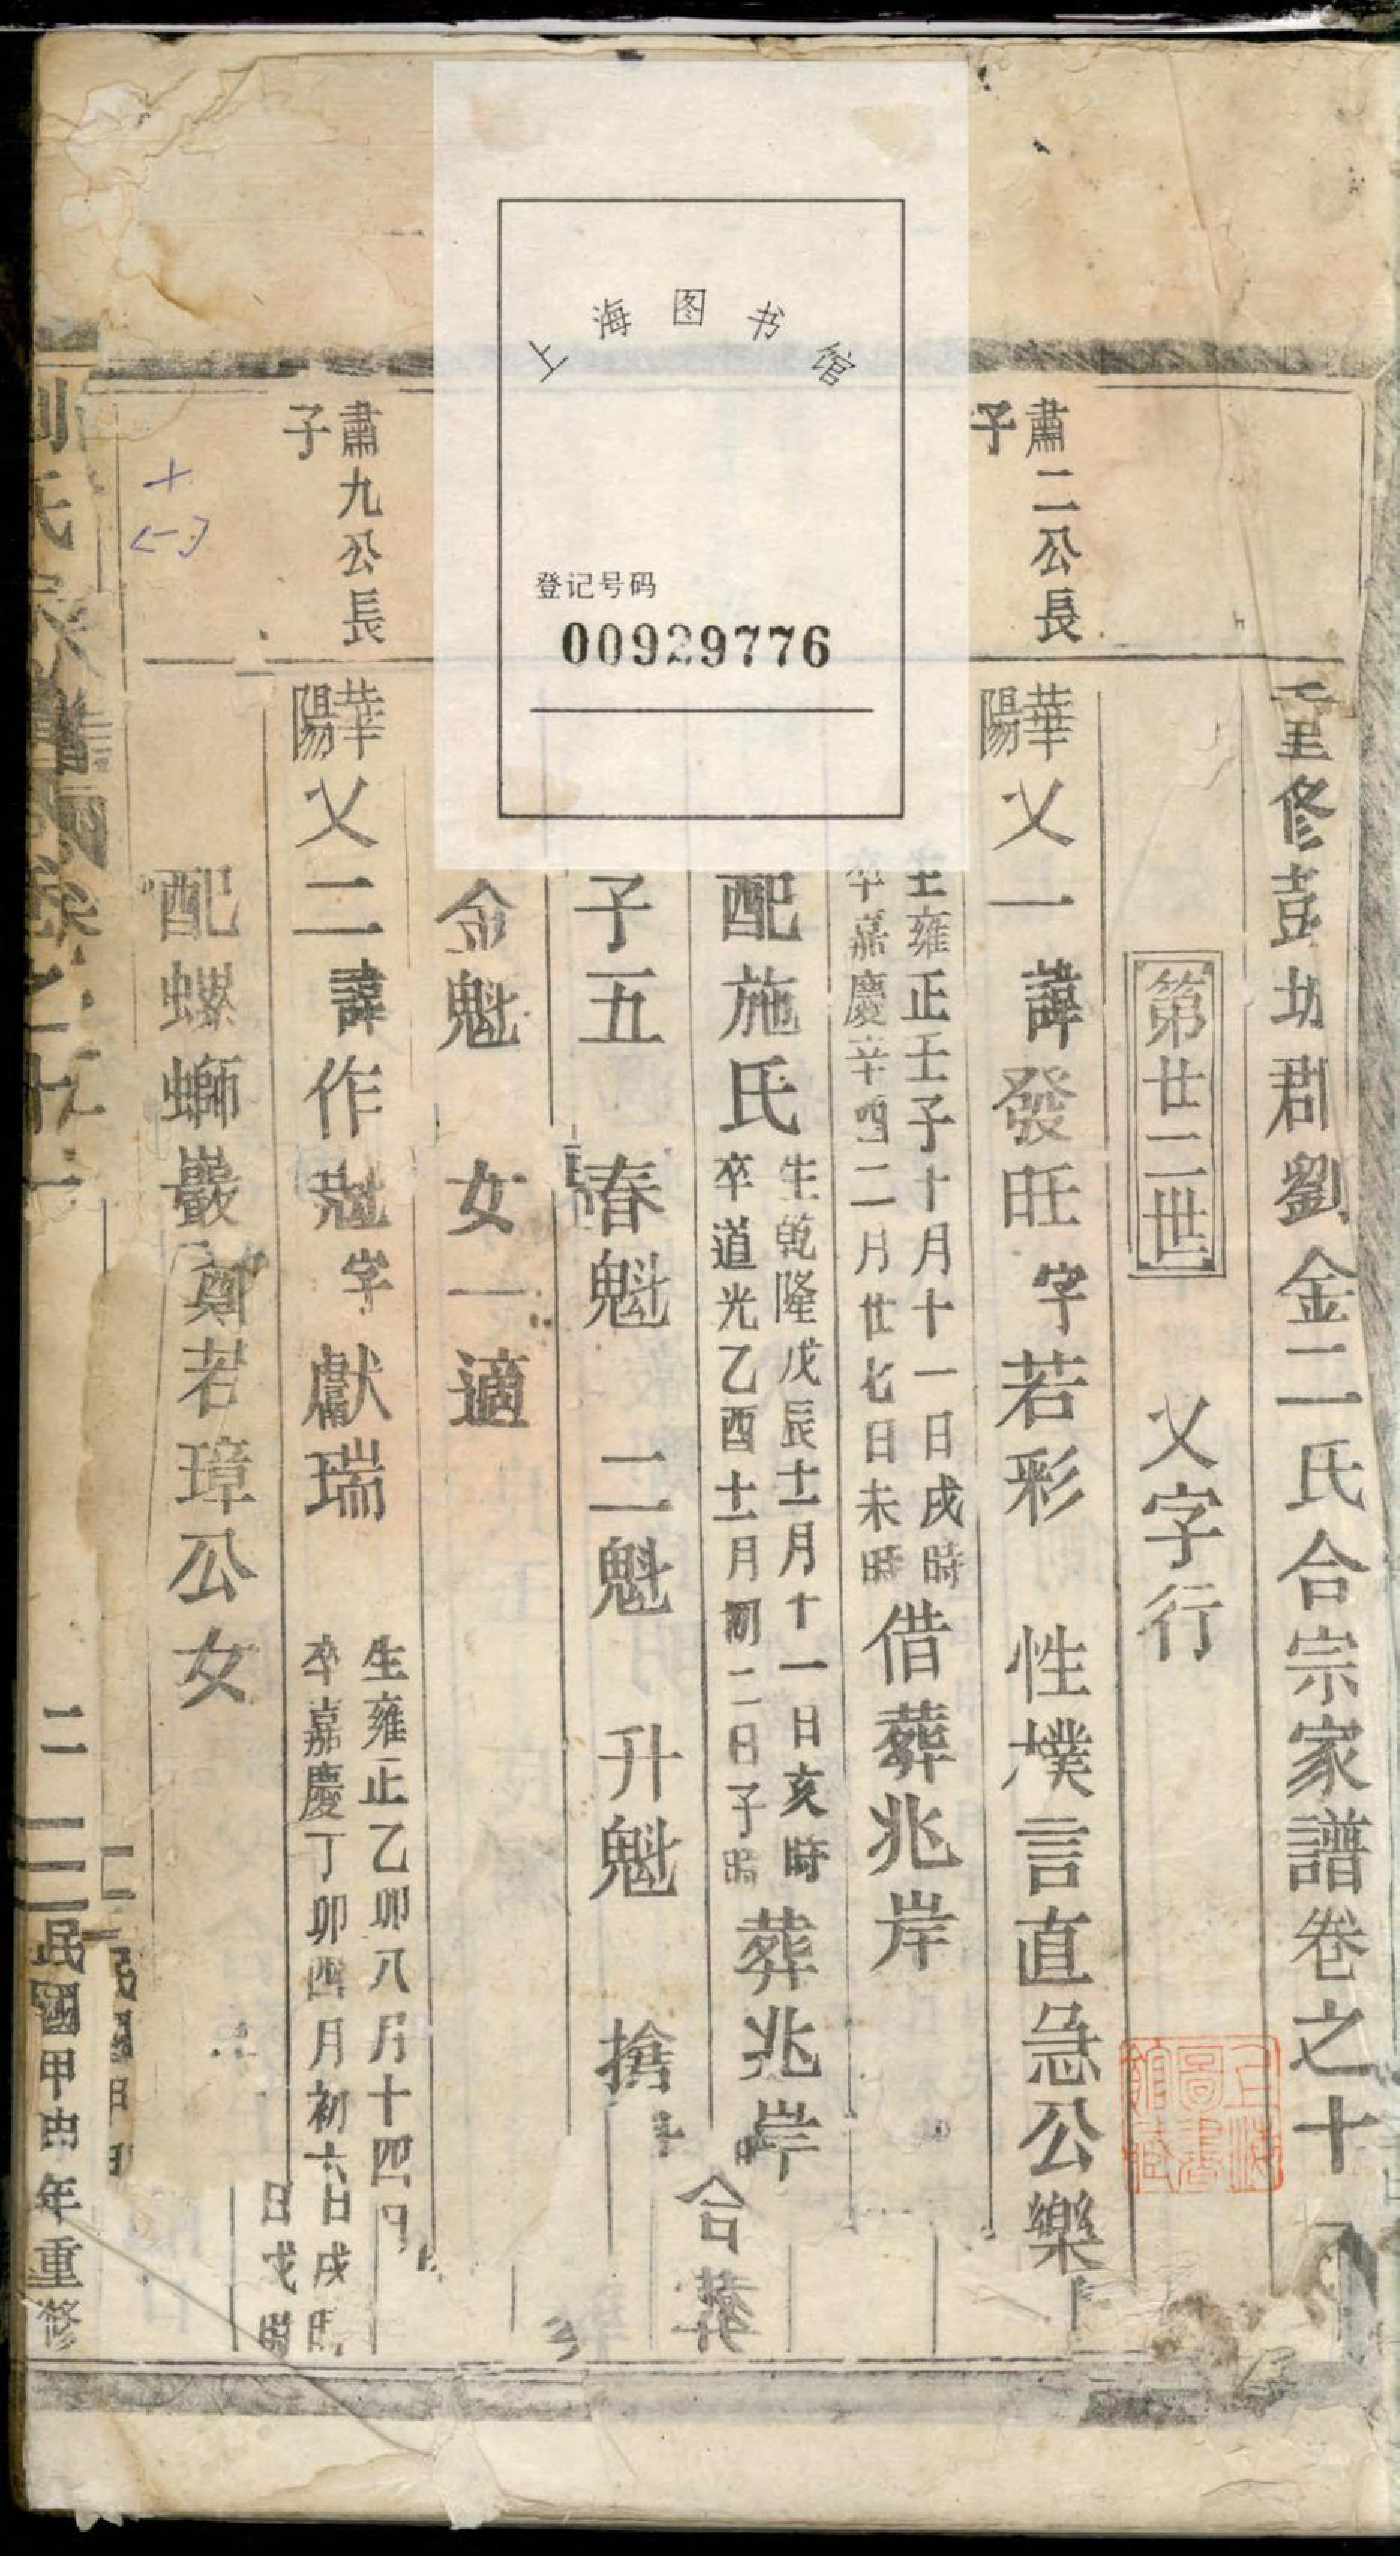 重修彭坊郡劉金二氏合宗家譜卷之十
第廿二世
乂字行
肅二公長
子
華陽乂一諱發旺字若彩 性樸言直急公樂
生雍正壬子十月十一日戌時
卒嘉慶辛酉二月廿七日未時
借葬兆岸
配施氏
生乾隆戊辰十二月十一日亥時
卒道光乙酉十二月初二日子時
葬兆岸
合葬
子五 春魁 二魁 升魁
金魁 女一適
肅九公長
子
華陽乂二諱作魁字獻瑞
生雍正乙卯八月十四日
卒嘉慶丁卯四月初六日戌時
配螺螄巖鄭若璋公女
劉氏家譜 卷之十
二
民國甲申年重修
上海图书馆
登记号码
00929776
上海圖書館藏